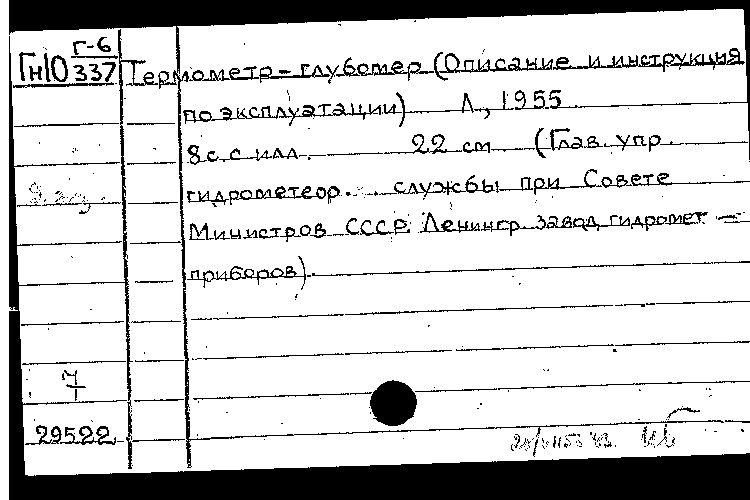 Г-6
Гн10 337 Термометр-глубомер (Описание и инструкция
по эксплуатации) Л., 1955
8 с. с илл. 22 см (Глав. упр.
гидрометеор. службы при Совете
Министров СССР. Ленингр. завод гидромет -
приборов).
7
29522